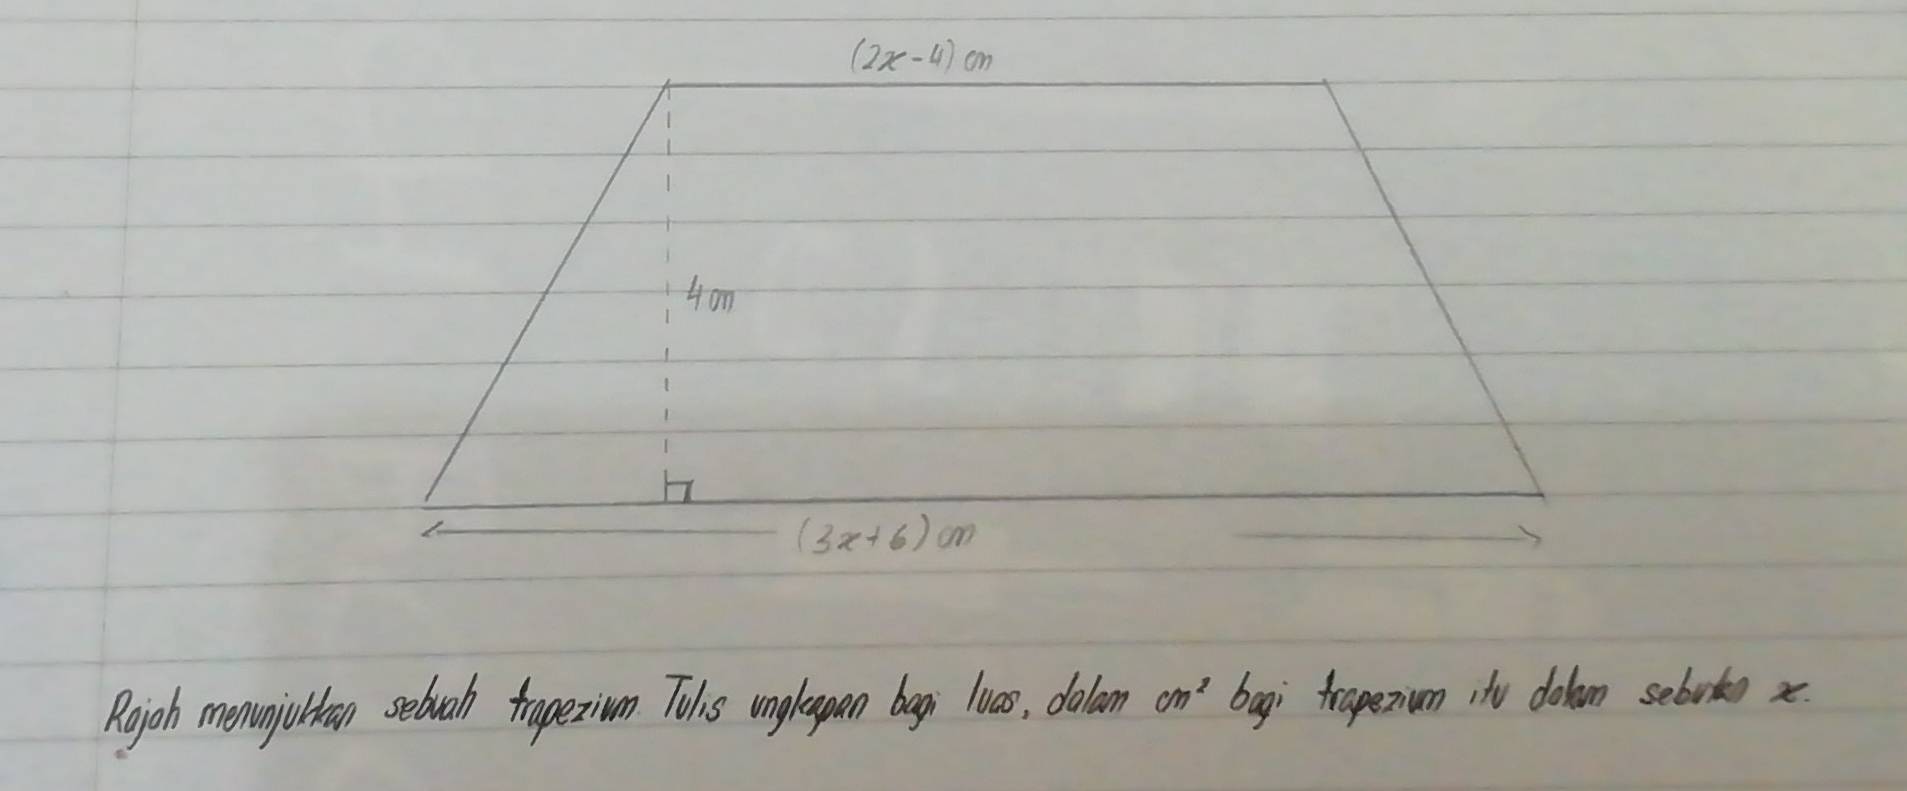 (2x-4) cm
4 cm
(3x+6) cm
Rajah menunjukkan sebuah trapezium. Tulis ungkapan bagi luas, dalam cm² bagi trapezium itu dalam sebutan x.